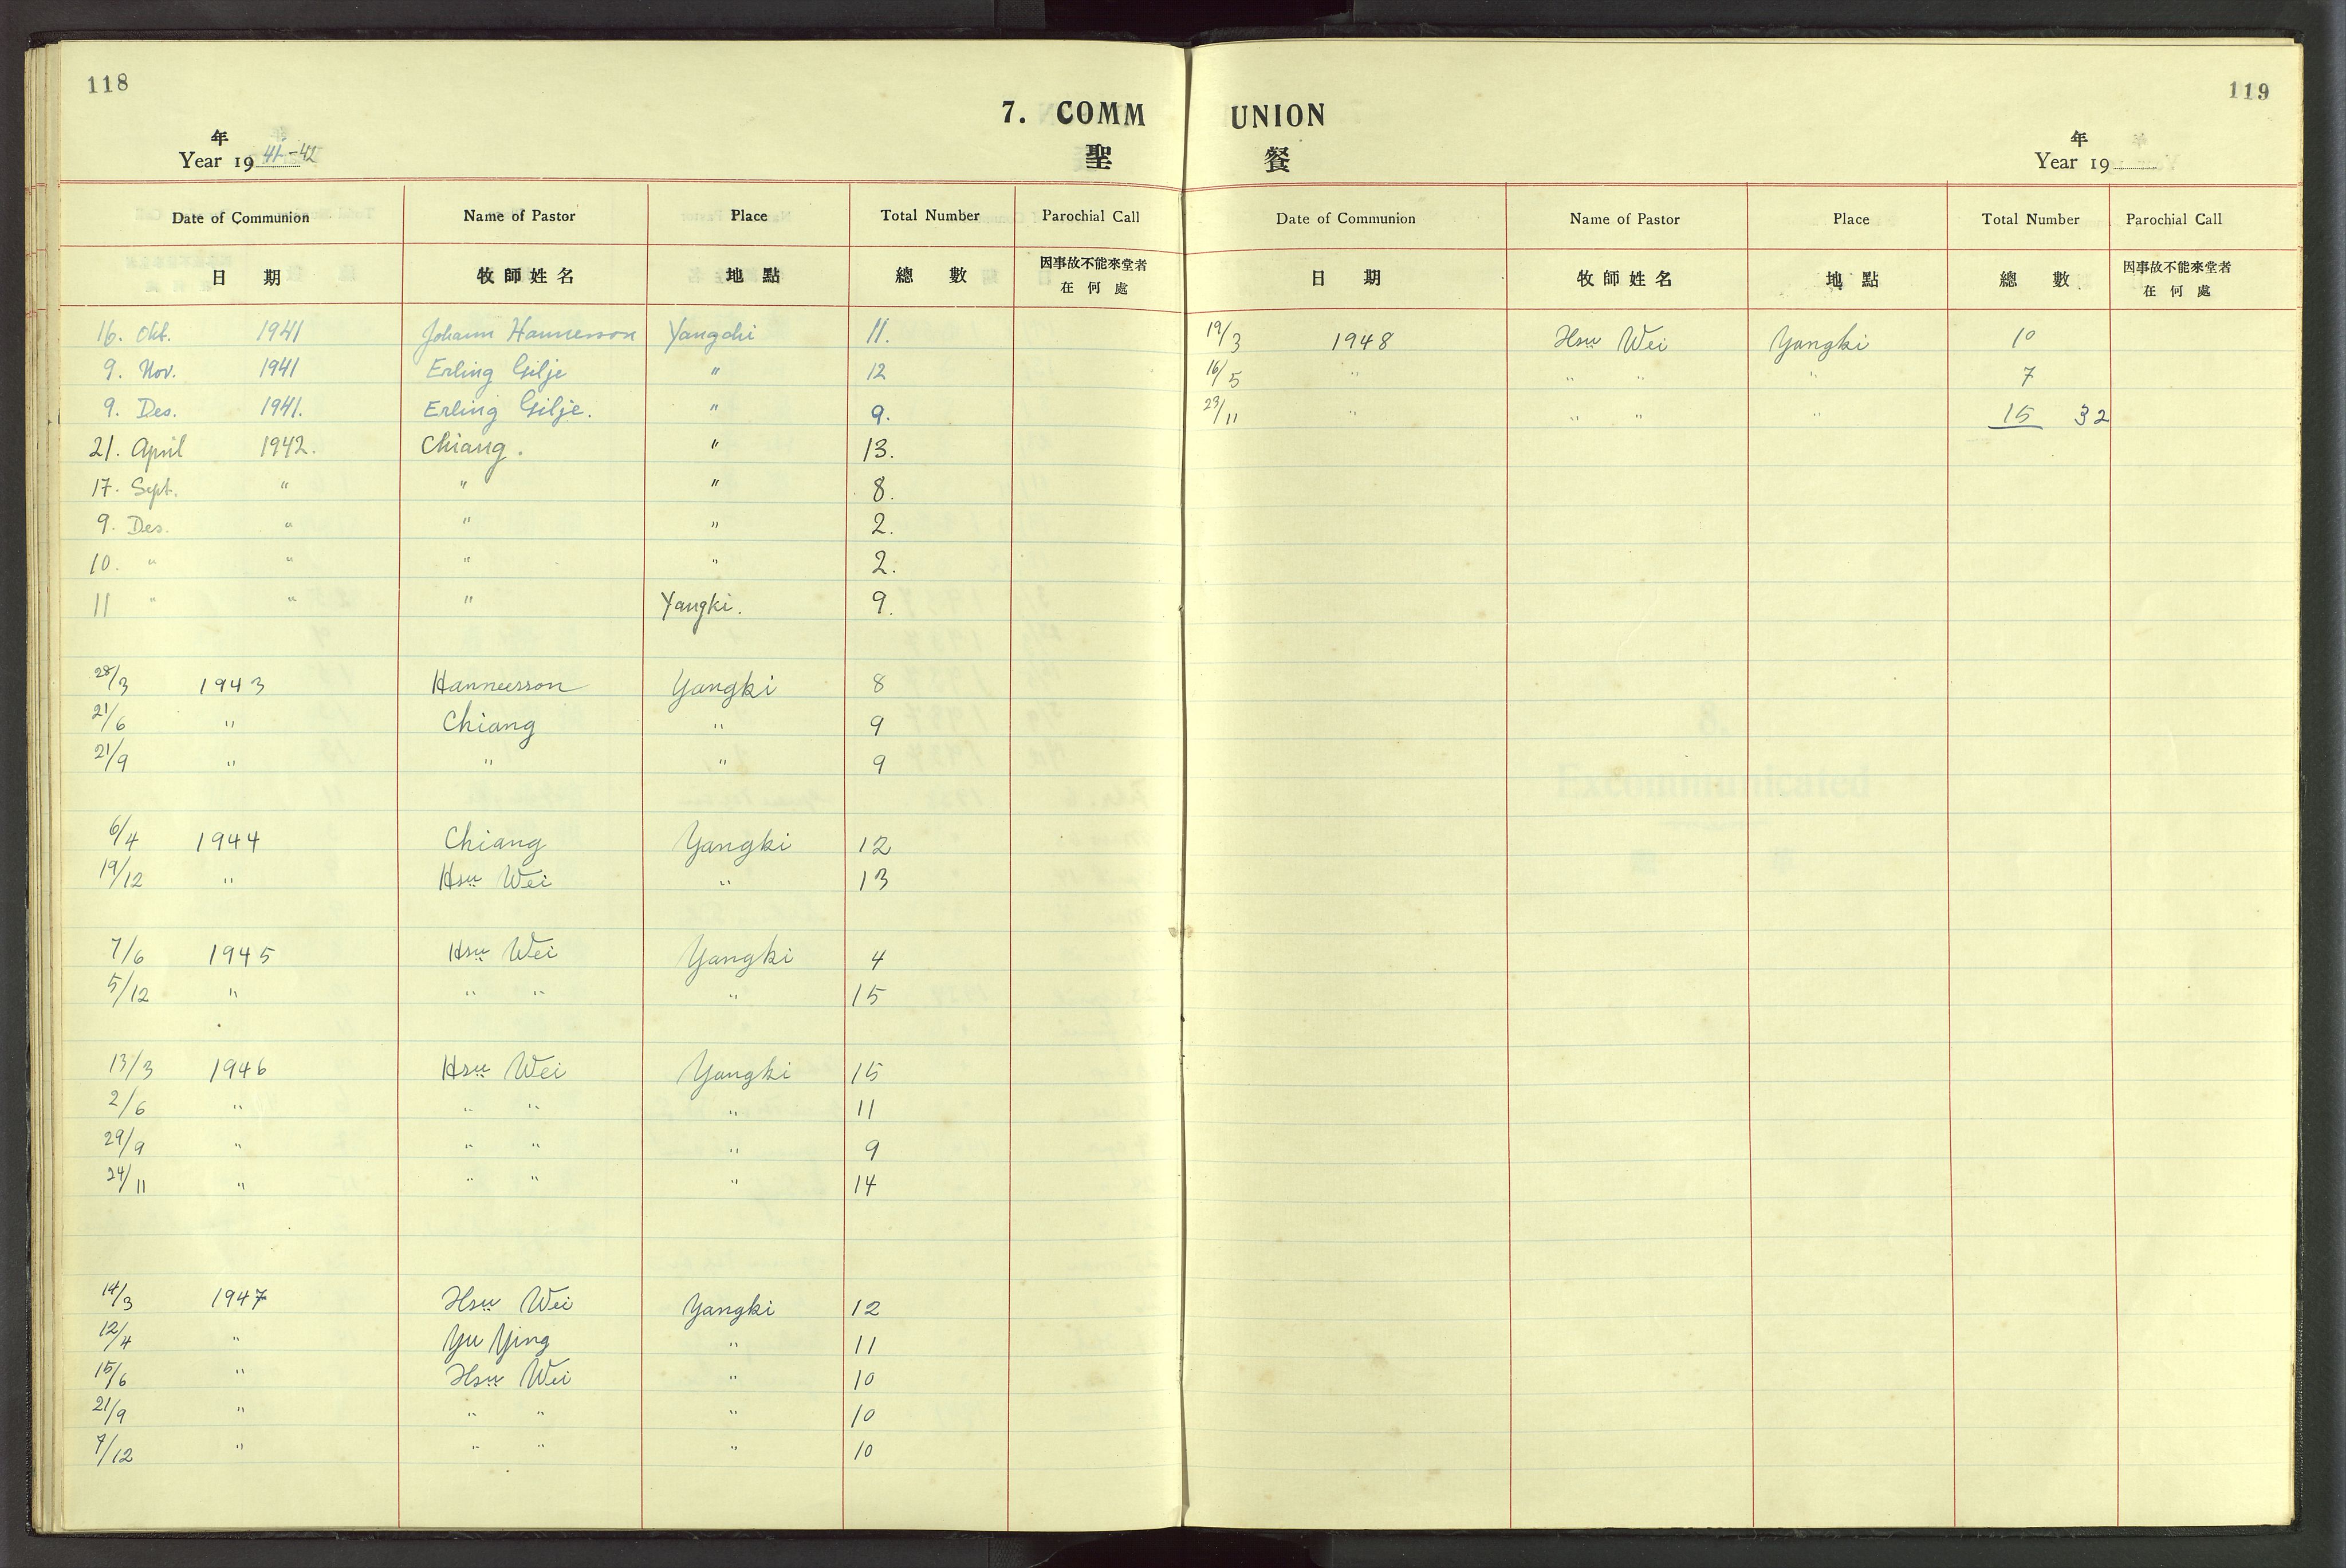 118
7. COMM
年
Year 19 41-42
聖
Date of Communion Name of Pastor Place Total Number Parochial Call
日 期 牧師姓名 地點 總數 因事故不能來堂者
在何處
16. Okt. 1941 Johann Hannesson Yangchi 11.
9. Nov. 1941 Erling Gilje " 12
9. Des. 1941. Erling Gilje. " 9.
21. April 1942. Chiang. " 13.
17. Sept. " " " 8.
9. Des. " " " 2.
10. " " " " 2.
11 " " " Yangki. 9.
28/3 1943 Hannesson Yangki 8
21/6 " Chiang " 9
21/9 " " " 9
6/4 1944 Chiang Yangki 12
19/12 " Hsü Wei " 13
7/6 1945 Hsü Wei Yangki 4
5/12 " " " " 15
13/3 1946 Hsü Wei Yangki 15
2/6 " " " " 11
29/9 " " " " 9
24/11 " " " " 14
14/3 1947 Hsü Wei Yangki 12
12/4 " Yu Ying " 11
15/6 " Hsü Wei " 10
21/9 " " " " 10
7/12 " " " " 10
119
UNION
年
Year 19
餐
Date of Communion Name of Pastor Place Total Number Parochial Call
日 期 牧師姓名 地點 總數 因事故不能來堂者
在何處
19/3 1948 Hsü Wei Yangki 10
16/5 " " " " 7
23/11 " " " " 15 32